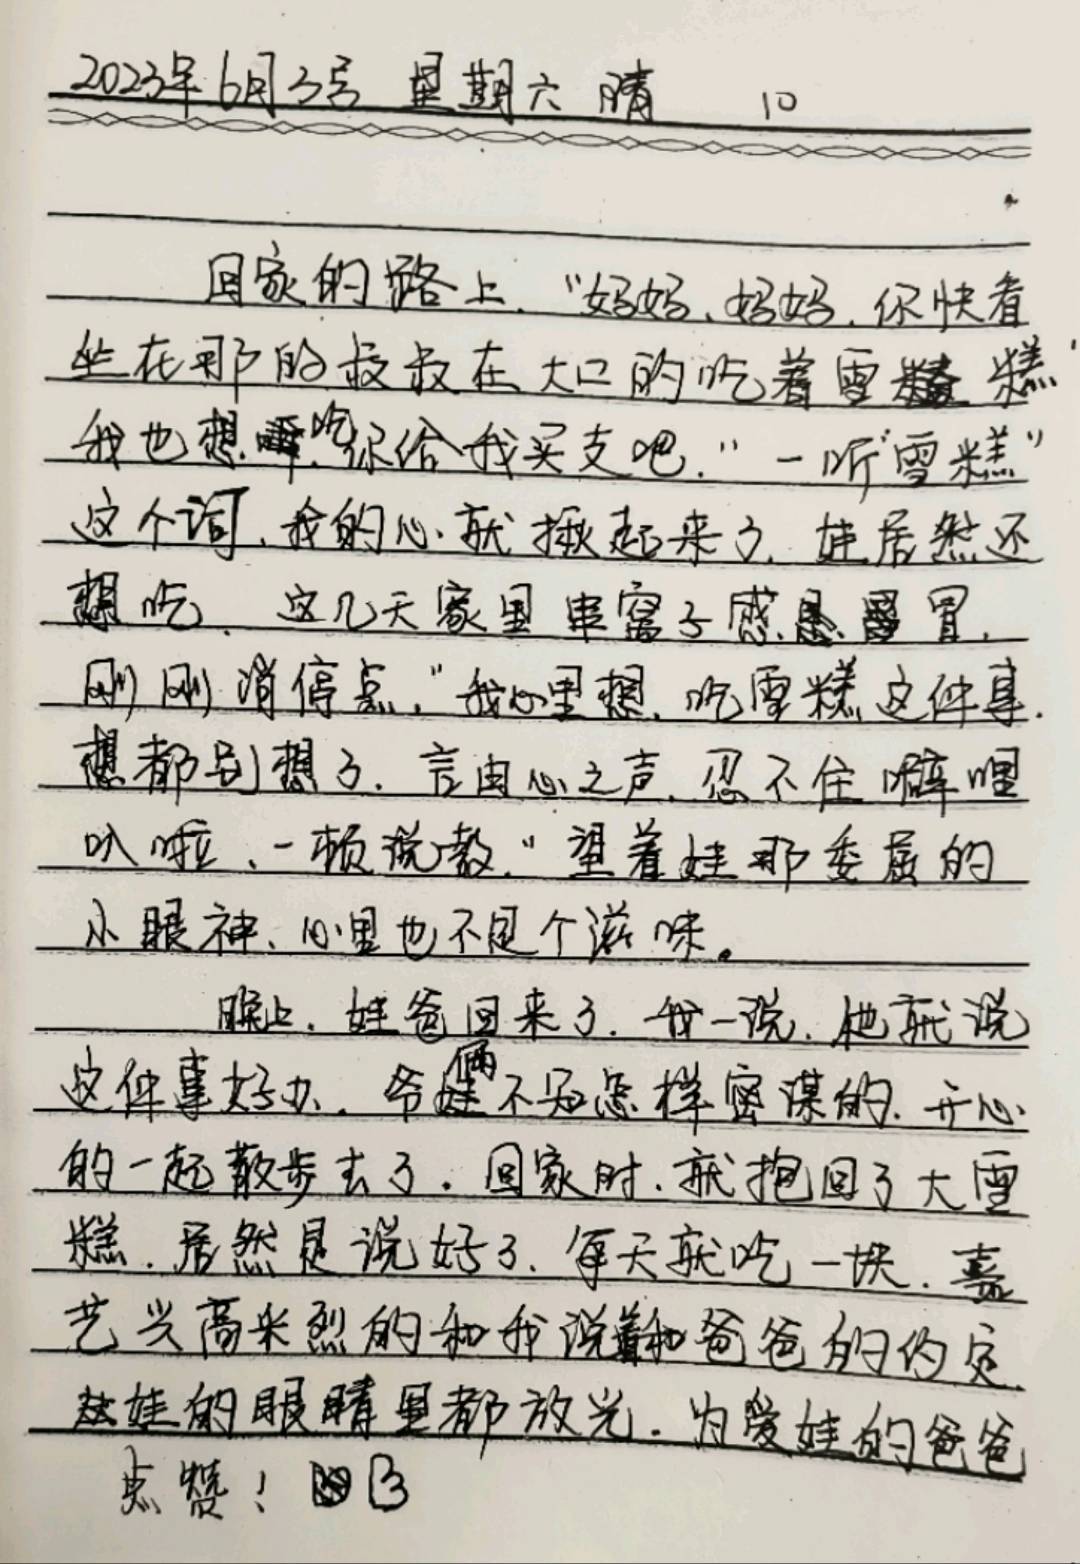 2023年6月3号 星期六 晴 10
回家的路上,“妈妈、妈妈,你快看
坐在那的叔叔在大口的吃着雪糕,
我也想吃,你给我买支吧.”一听“雪糕”
这个词,我的心就揪起来了,娃居然还
想吃,这几天家里串窝子感冒,
刚刚消停点,“我心里想,吃雪糕这件事,
想都别想了.言由心之声,忍不住噼哩
叭啦,一顿说教.”望着娃那委屈的
小眼神、心里也不是个滋味。
晚上,娃爸回来了,我一说,他就说
这件事好办,爷俩不知怎样密谋的,开心
的一起散步去了.回家时,就抱回了大雪
糕,居然是说好了,每天就吃一块,嘉
艺兴高采烈的和我说着和爸爸的约定,
娃的眼睛里都放光.为爱娃的爸爸
点赞!